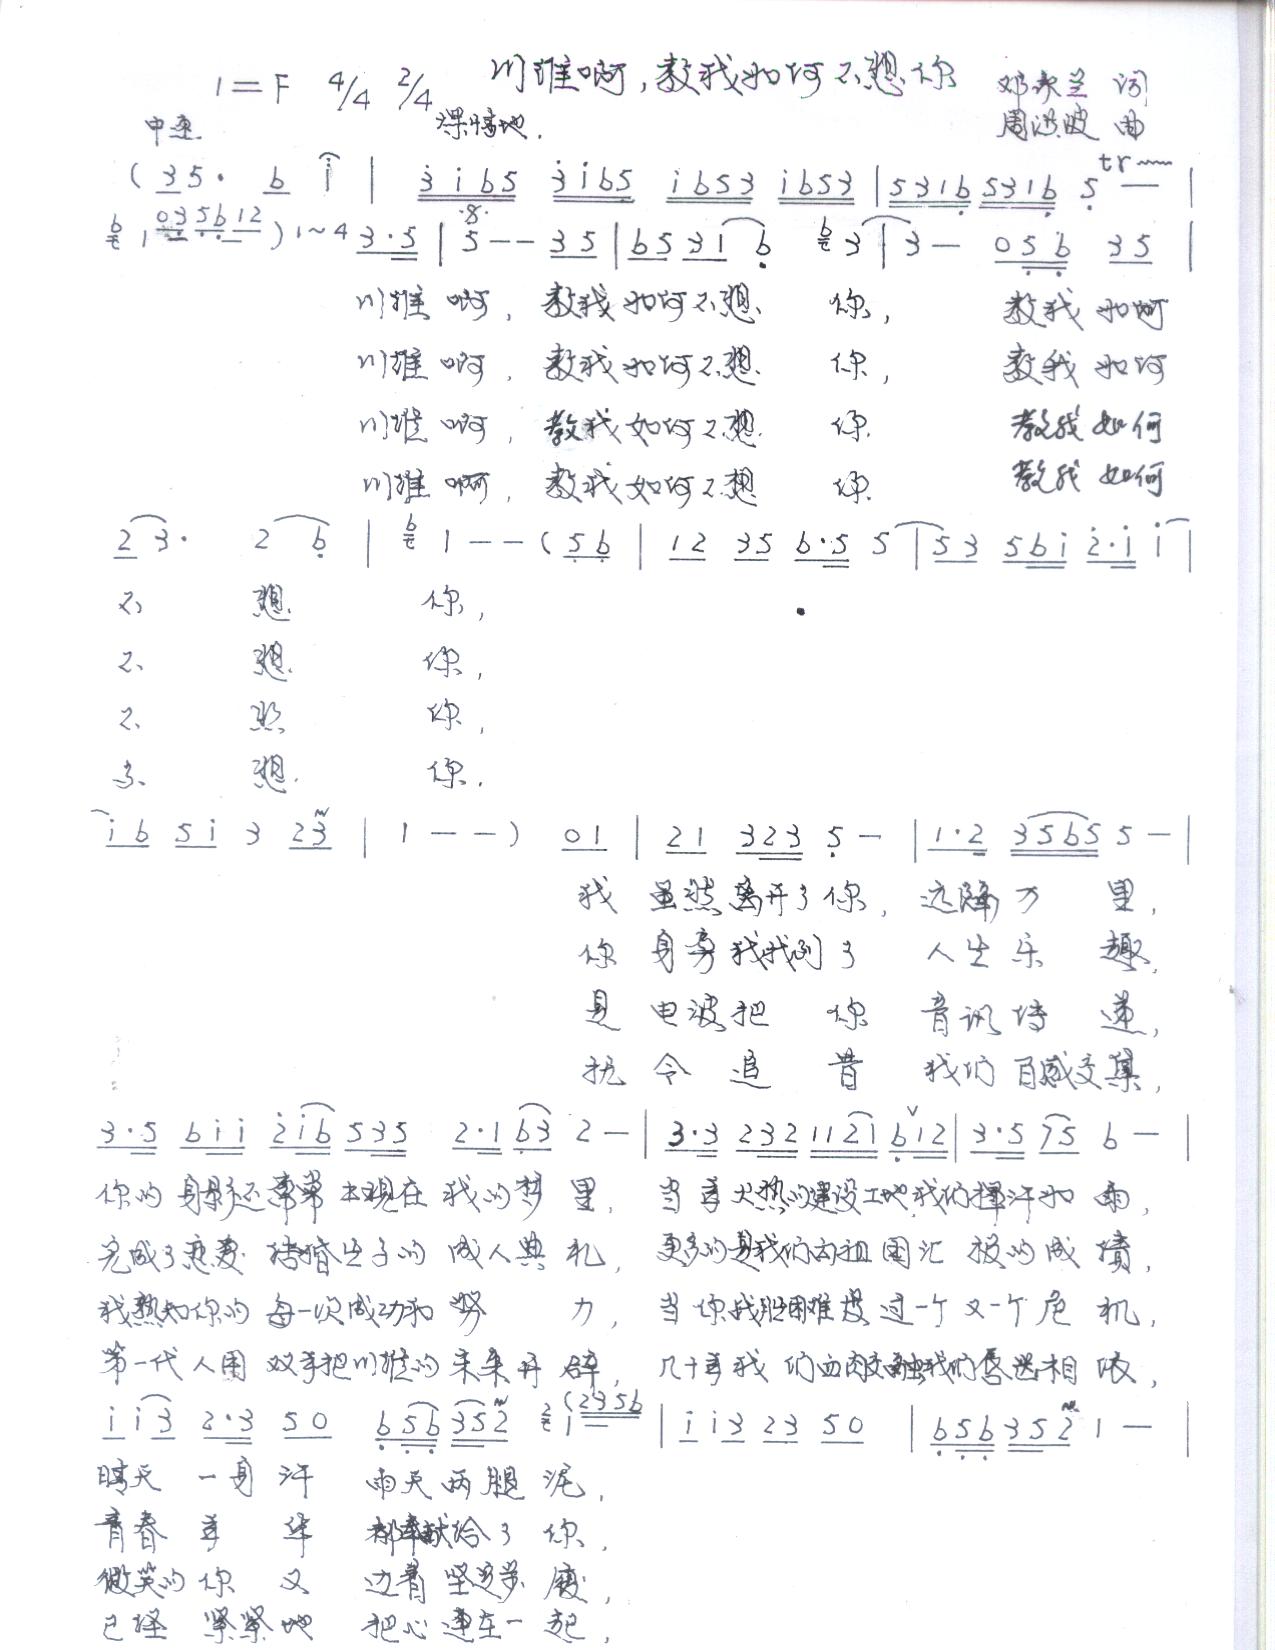 川维啊,教我如何不想你
1=F 4/4 2/4
中速 深情地.
词
周洪波 曲
tr
(35· 6 i | 3i65 3i65 i653 i653 | 5316 5316 5 — |
1 03 56 12 ) 1~4 3·5 | 5 — — 35 | 65 31 6 3 | 3 — 056 35 |
·8·
川维 啊, 教我如何不想 你, 教我 如何
川维 啊, 教我如何不想 你, 教我 如何
川维 啊, 教我如何不想 你. 教我 如何
川维 啊, 教我如何不想 你. 教我 如何
23· 2 6 | 1 — — (56 | 12 35 6·5 5 | 53 56i 2·i i |
不 想 你,
不 想 你,
不 想 你,
不 想 你.
i6 5i 3 23 | 1 — — ) 01 | 21 323 5 — | 1·2 3565 5 — |
我 虽然离开了你, 远隔万 里,
你 身旁我找到了 人生乐 趣,
是 电波把 你 音讯传 递,
抚 今 追 昔 我们百感交集,
3·5 6ii 2i6 535 2·1 63 2 — | 3·3 232 1121 612 | 3·5 75 6 — |
你的 身影还常常出现在 我的梦 里, 当年火热的建设工地我们挥汗如 雨,
完成了恋爱 结婚生子的 成人典 礼, 更多的是我们向祖国汇 报的成 绩,
我熟知你的 每一次成功和 努 力, 当你战胜困难度过一个又一个危 机,
第一代人用 双手把川维的未来开 辟, 几十年我们血肉交融我们唇齿相 依,
ii3 2·3 50 656 352 1 — (2356 | ii3 23 50 | 656 352 1 — |
晴天 一身汗 雨天两腿 泥,
青春 年 华 都奉献给了 你,
微笑的你 又 迈着坚定步 履,
已经 紧紧地 把心连在一 起,